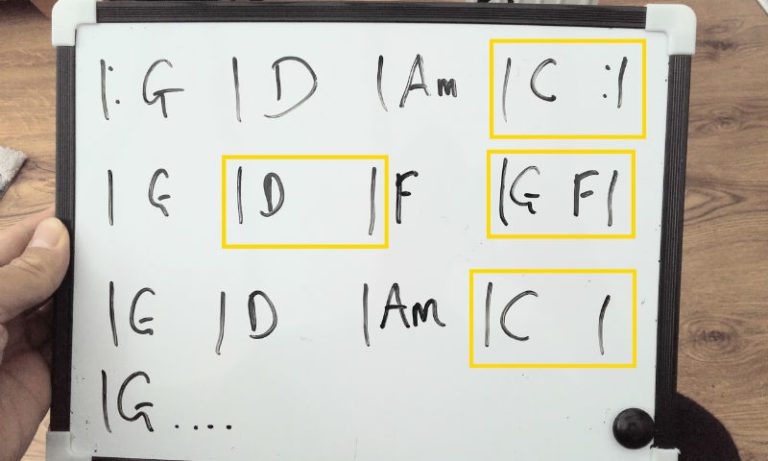 |: G | D | Am | C :|
| G | D | F | G F |
| G | D | Am | C |
| G ....